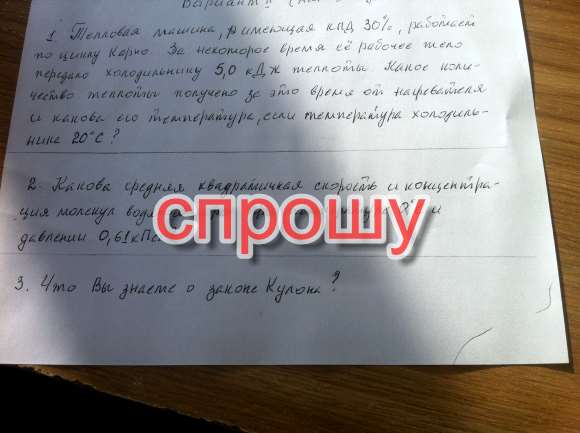 Вариант
1. Тепловая машина, имеющая КПД 30%, работает
по циклу Карно. За некоторое время её рабочее тело
передало холодильнику 5,0 кДж теплоты. Какое коли-
чество теплоты получено за это время от нагревателя
и какова его температура, если температура холодиль-
ника 20°С?
2. Какова средняя квадратичная скорость и концентра-
ция молекул 0° и
давлении 0,61
спрошу
3. Что Вы знаете о законе Кулона?